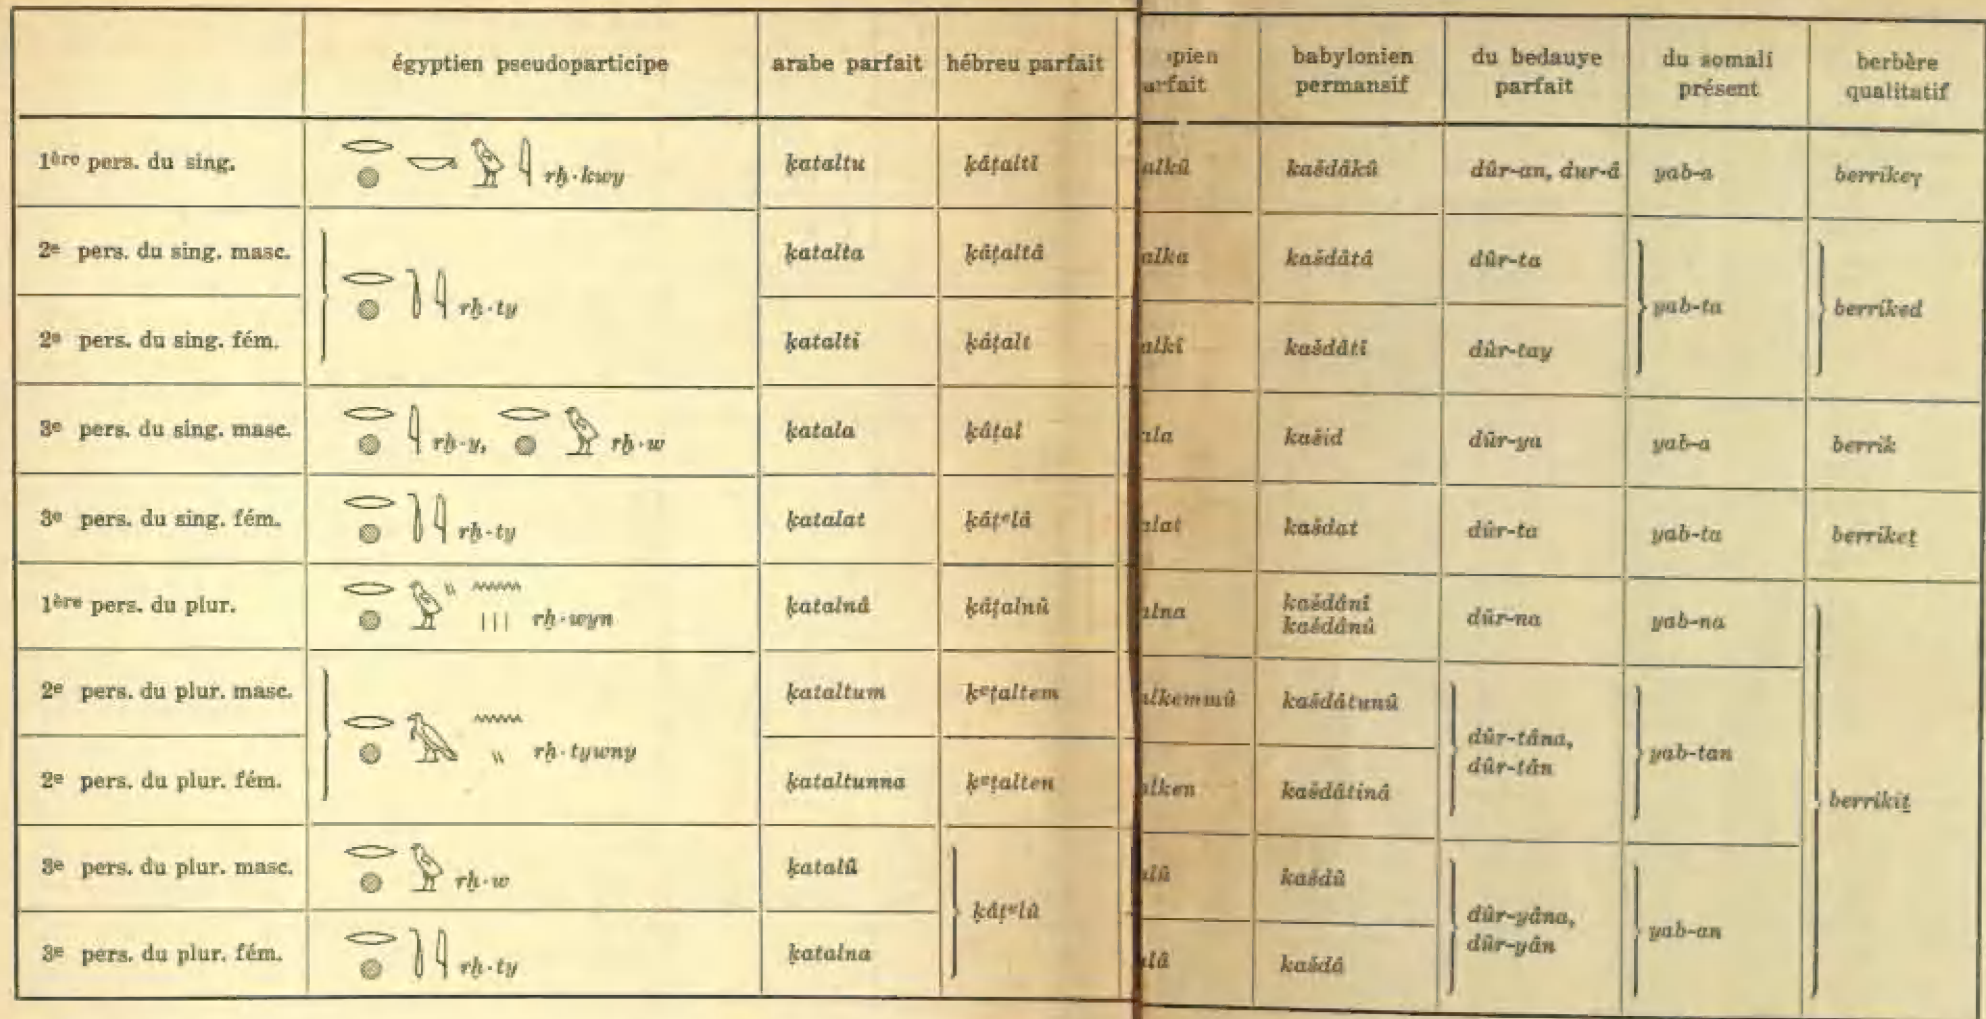 égyptien pseudoparticipe arabe parfait hébreu parfait pien babylonien du bedauye du somali berbère
arfait permansif parfait présent qualitatif
1ère pers. du sing. rḫ·kwy ḳataltu ḳâṭaltî alkû kašdâkû dûr-an, dur-â yab-a berrikeγ
2e pers. du sing. masc. rḫ·ty ḳatalta ḳâṭaltâ alka kašdâtâ dûr-ta yab-ta berriked
2e pers. du sing. fém. ḳatalti ḳâṭalt alkî kašdâtî dûr-tay
3e pers. du sing. masc. rḫ·y, rḫ·w ḳatala ḳâṭal ala kašid dûr-ya yab-a berrik
3e pers. du sing. fém. rḫ·ty ḳatalat ḳâṭᵉlâ alat kašdat dûr-ta yab-ta berrikeṯ
1ère pers. du plur. rḫ·wyn ḳatalnâ ḳâṭalnû alna kašdânî dûr-na yab-na berrikiṯ
kašdânû
2e pers. du plur. masc. rḫ·tywny ḳataltum ḳᵉṭaltem alkemmû kašdâtunû dûr-tâna, yab-tan
dûr-tân
2e pers. du plur. fém. ḳataltunna ḳᵉṭalten alken kašdâtinâ
3e pers. du plur. masc. rḫ·w ḳatalû ḳâṭᵉlû alû kašdû dûr-yâna, yab-an
dûr-yân
3e pers. du plur. fém. rḫ·ty ḳatalna alâ kašdâ